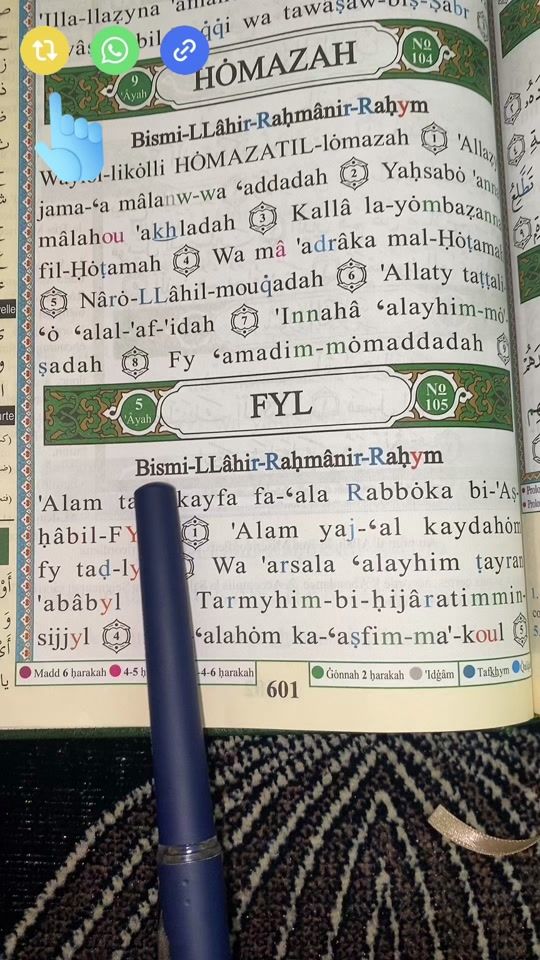 'Illa-llaẓyna 'âmanou
bil- wa tawaṣaw-biṣ-Ṣabr
9 'Âyah HȮMAZAH No 104
Bismi-LLâhir-Raḥmânir-Raḥym
-likȯlli HȮMAZATIL-lȯmazah 1
jama-‘a mâlanw-wa ‘addadah 2 Yaḥsabȯ
mâlahou 'akhladah 3 Kallâ la-yȯmbaẓann
fil-Ḥȯṭamah 4 Wa mâ 'adrâka mal-Ḥȯṭamah
5 Nârȯ-LLâhil-mouq̇adah 6 'Allaty taṭṭali
‘ȯ ‘alal-'af-'idah 7 'Innahâ ‘alayhim-mȯ'
ṣadah 8 Fy ‘amadim-mȯmaddadah
5 'Âyah FYL No 105
Bismi-LLâhir-Raḥmânir-Raḥym
'Alam kayfa fa-‘ala Rabbȯka bi-'Aṣ-
ḥâbil-FY 1 'Alam yaj-‘al kaydahȯm
fy taḍ-ly Wa 'arsala ‘alayhim ṭayran
'abâbyl Tarmyhim-bi-ḥijâratimmin-
sijjyl 4 ‘alahȯm ka-‘aṣfim-ma'-koul 5
Madd 6 ḥarakah 4-5 -4-6 ḥarakah Ġȯnnah 2 ḥarakah 'Idġâm Tafkhym
601